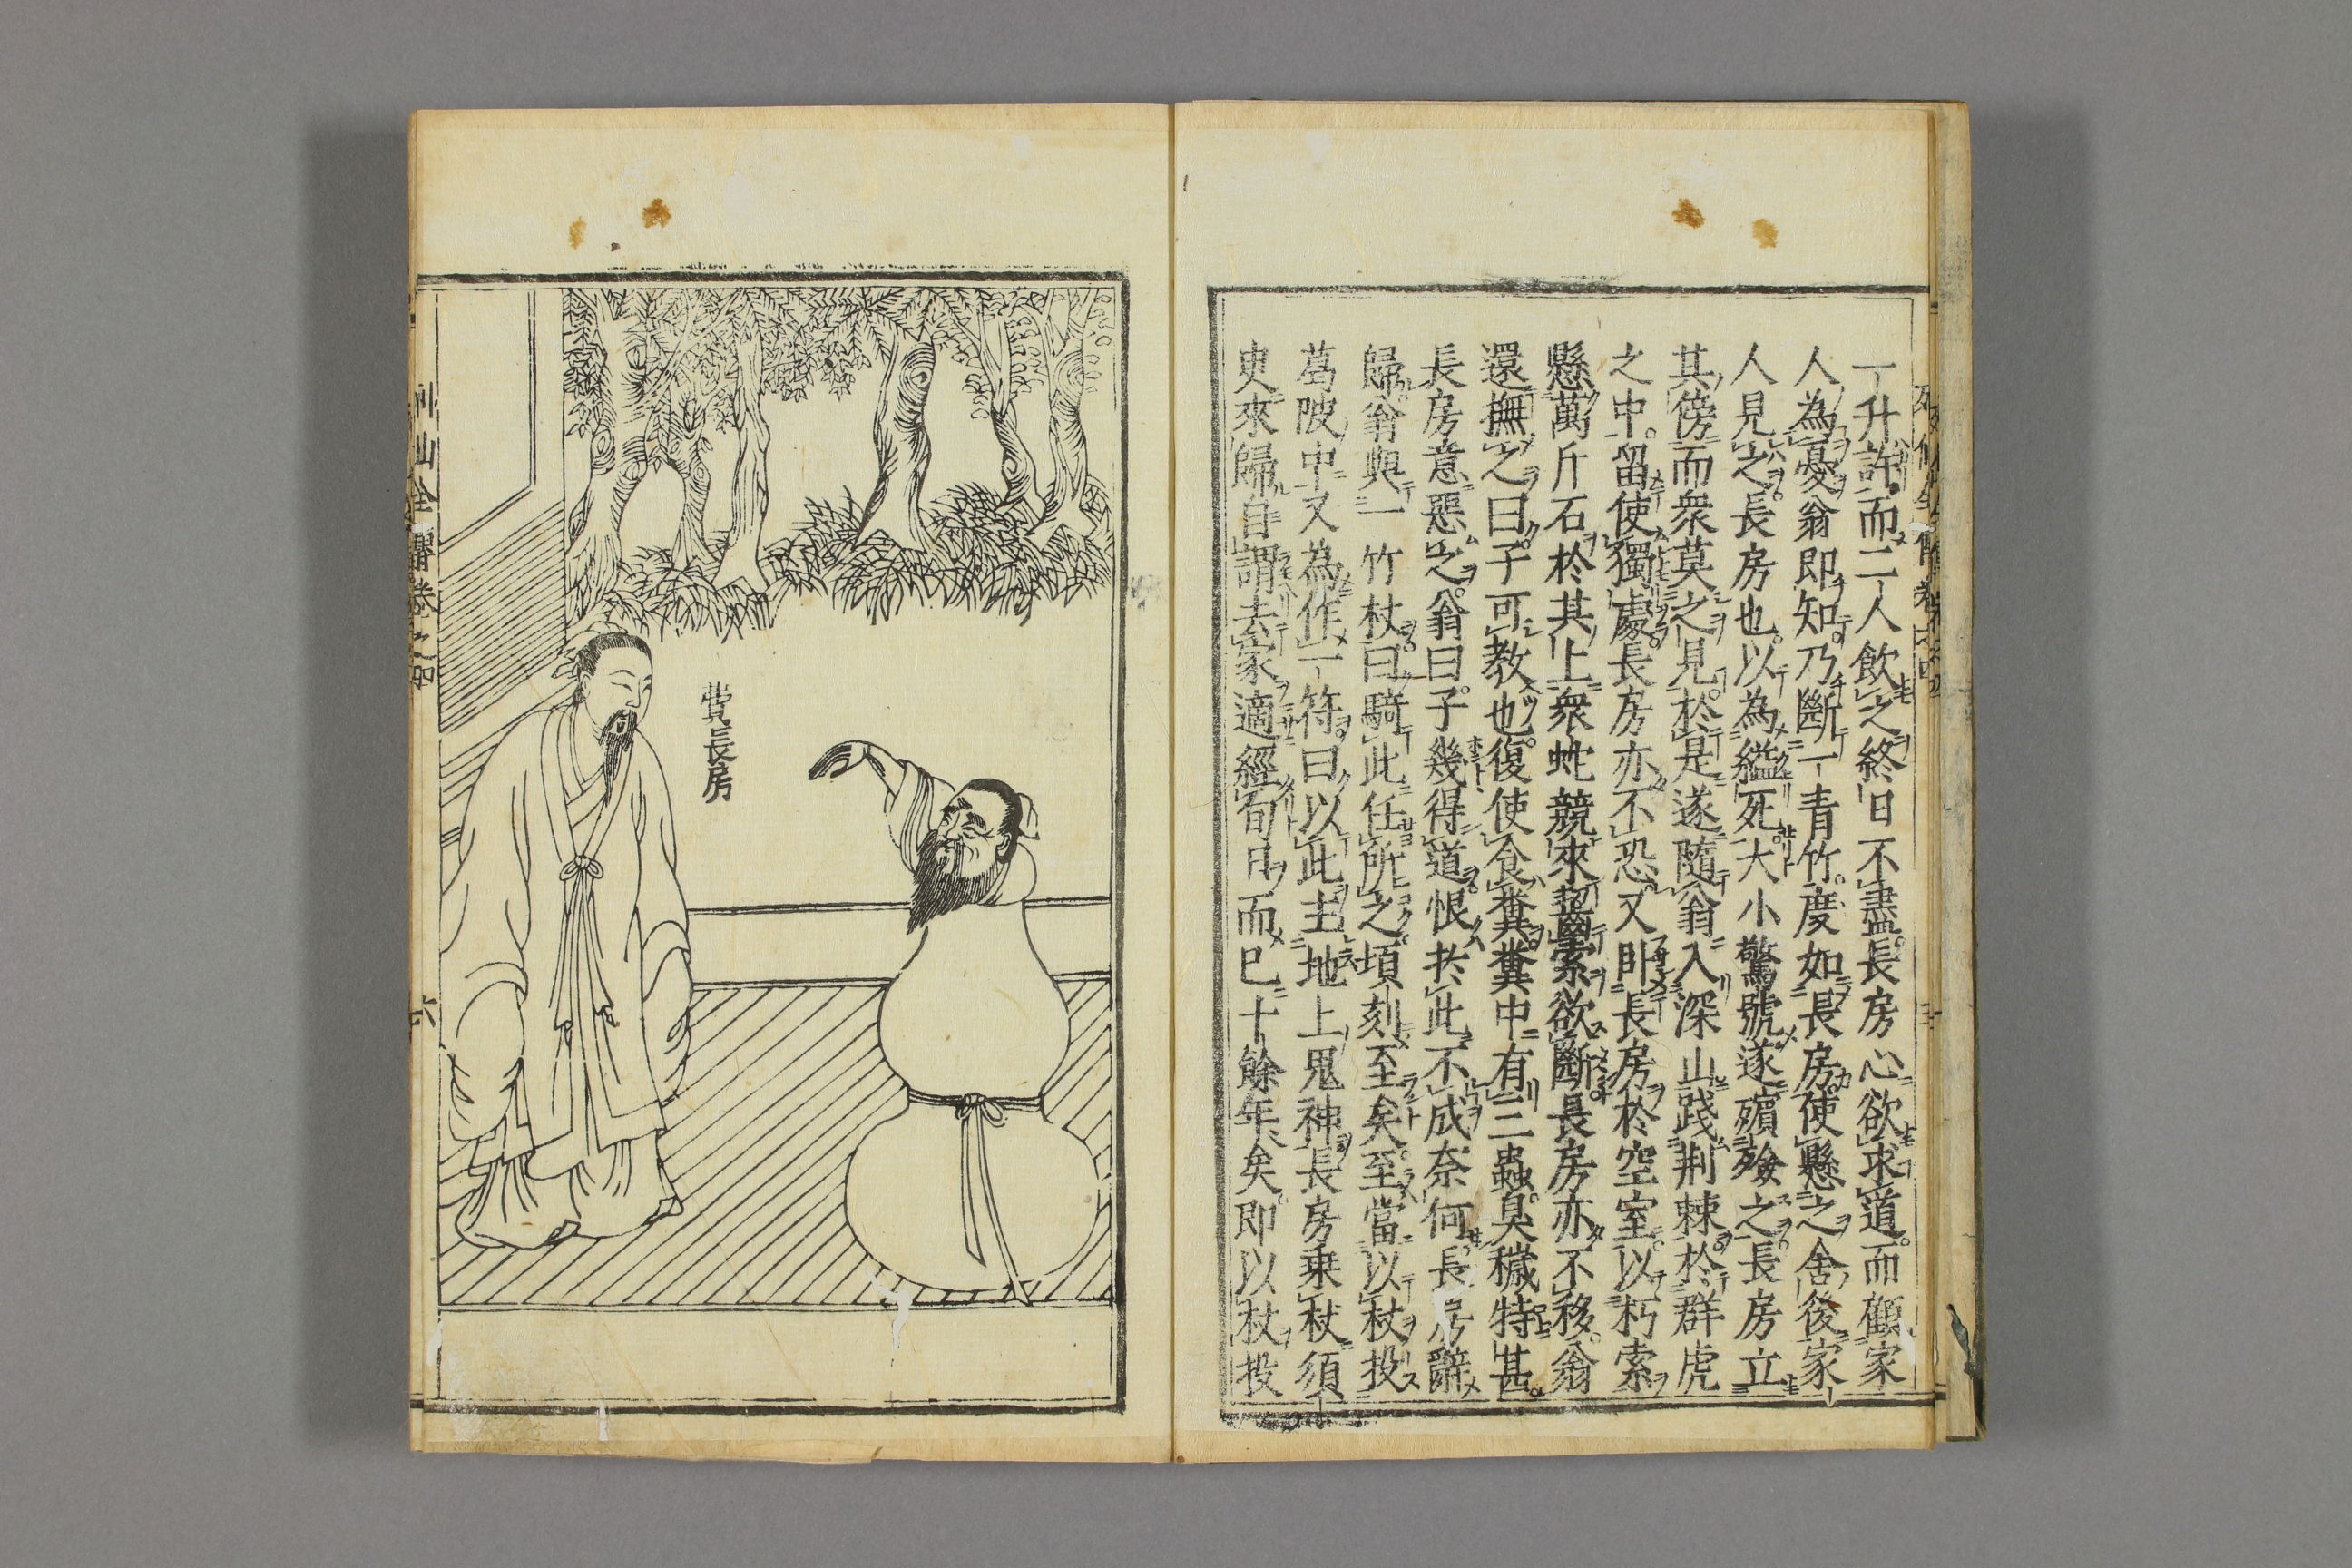 一升許而二人飲之終日不盡。長房心欲求道。而顧家
人為憂翁即知。乃斷一青竹。度如長房。使懸之舍後家
人見之長房也。以為縊死。大小驚號遂殯殮之長房立
其傍而衆莫之見。於是遂隨翁入深山踐荆棘於群虎
之中。留使獨處。長房亦不恐又卧長房於空室以朽索
懸萬斤石於其上衆蛇競來齧索欲斷長房亦不移。翁
還撫之曰子可教也。復使食糞糞中有三蟲。臭穢特甚。
長房意惡之。翁曰。子幾得道恨於此不成奈何長房辭
歸翁與一竹杖。曰騎此任所之頃刻至矣至當以杖投
葛陂中又為作一符。曰以此主地上鬼神長房乗杖須
臾來歸自謂去家適經旬日而已十餘年矣。即以杖投
費長房
列仙全傳卷之四
六